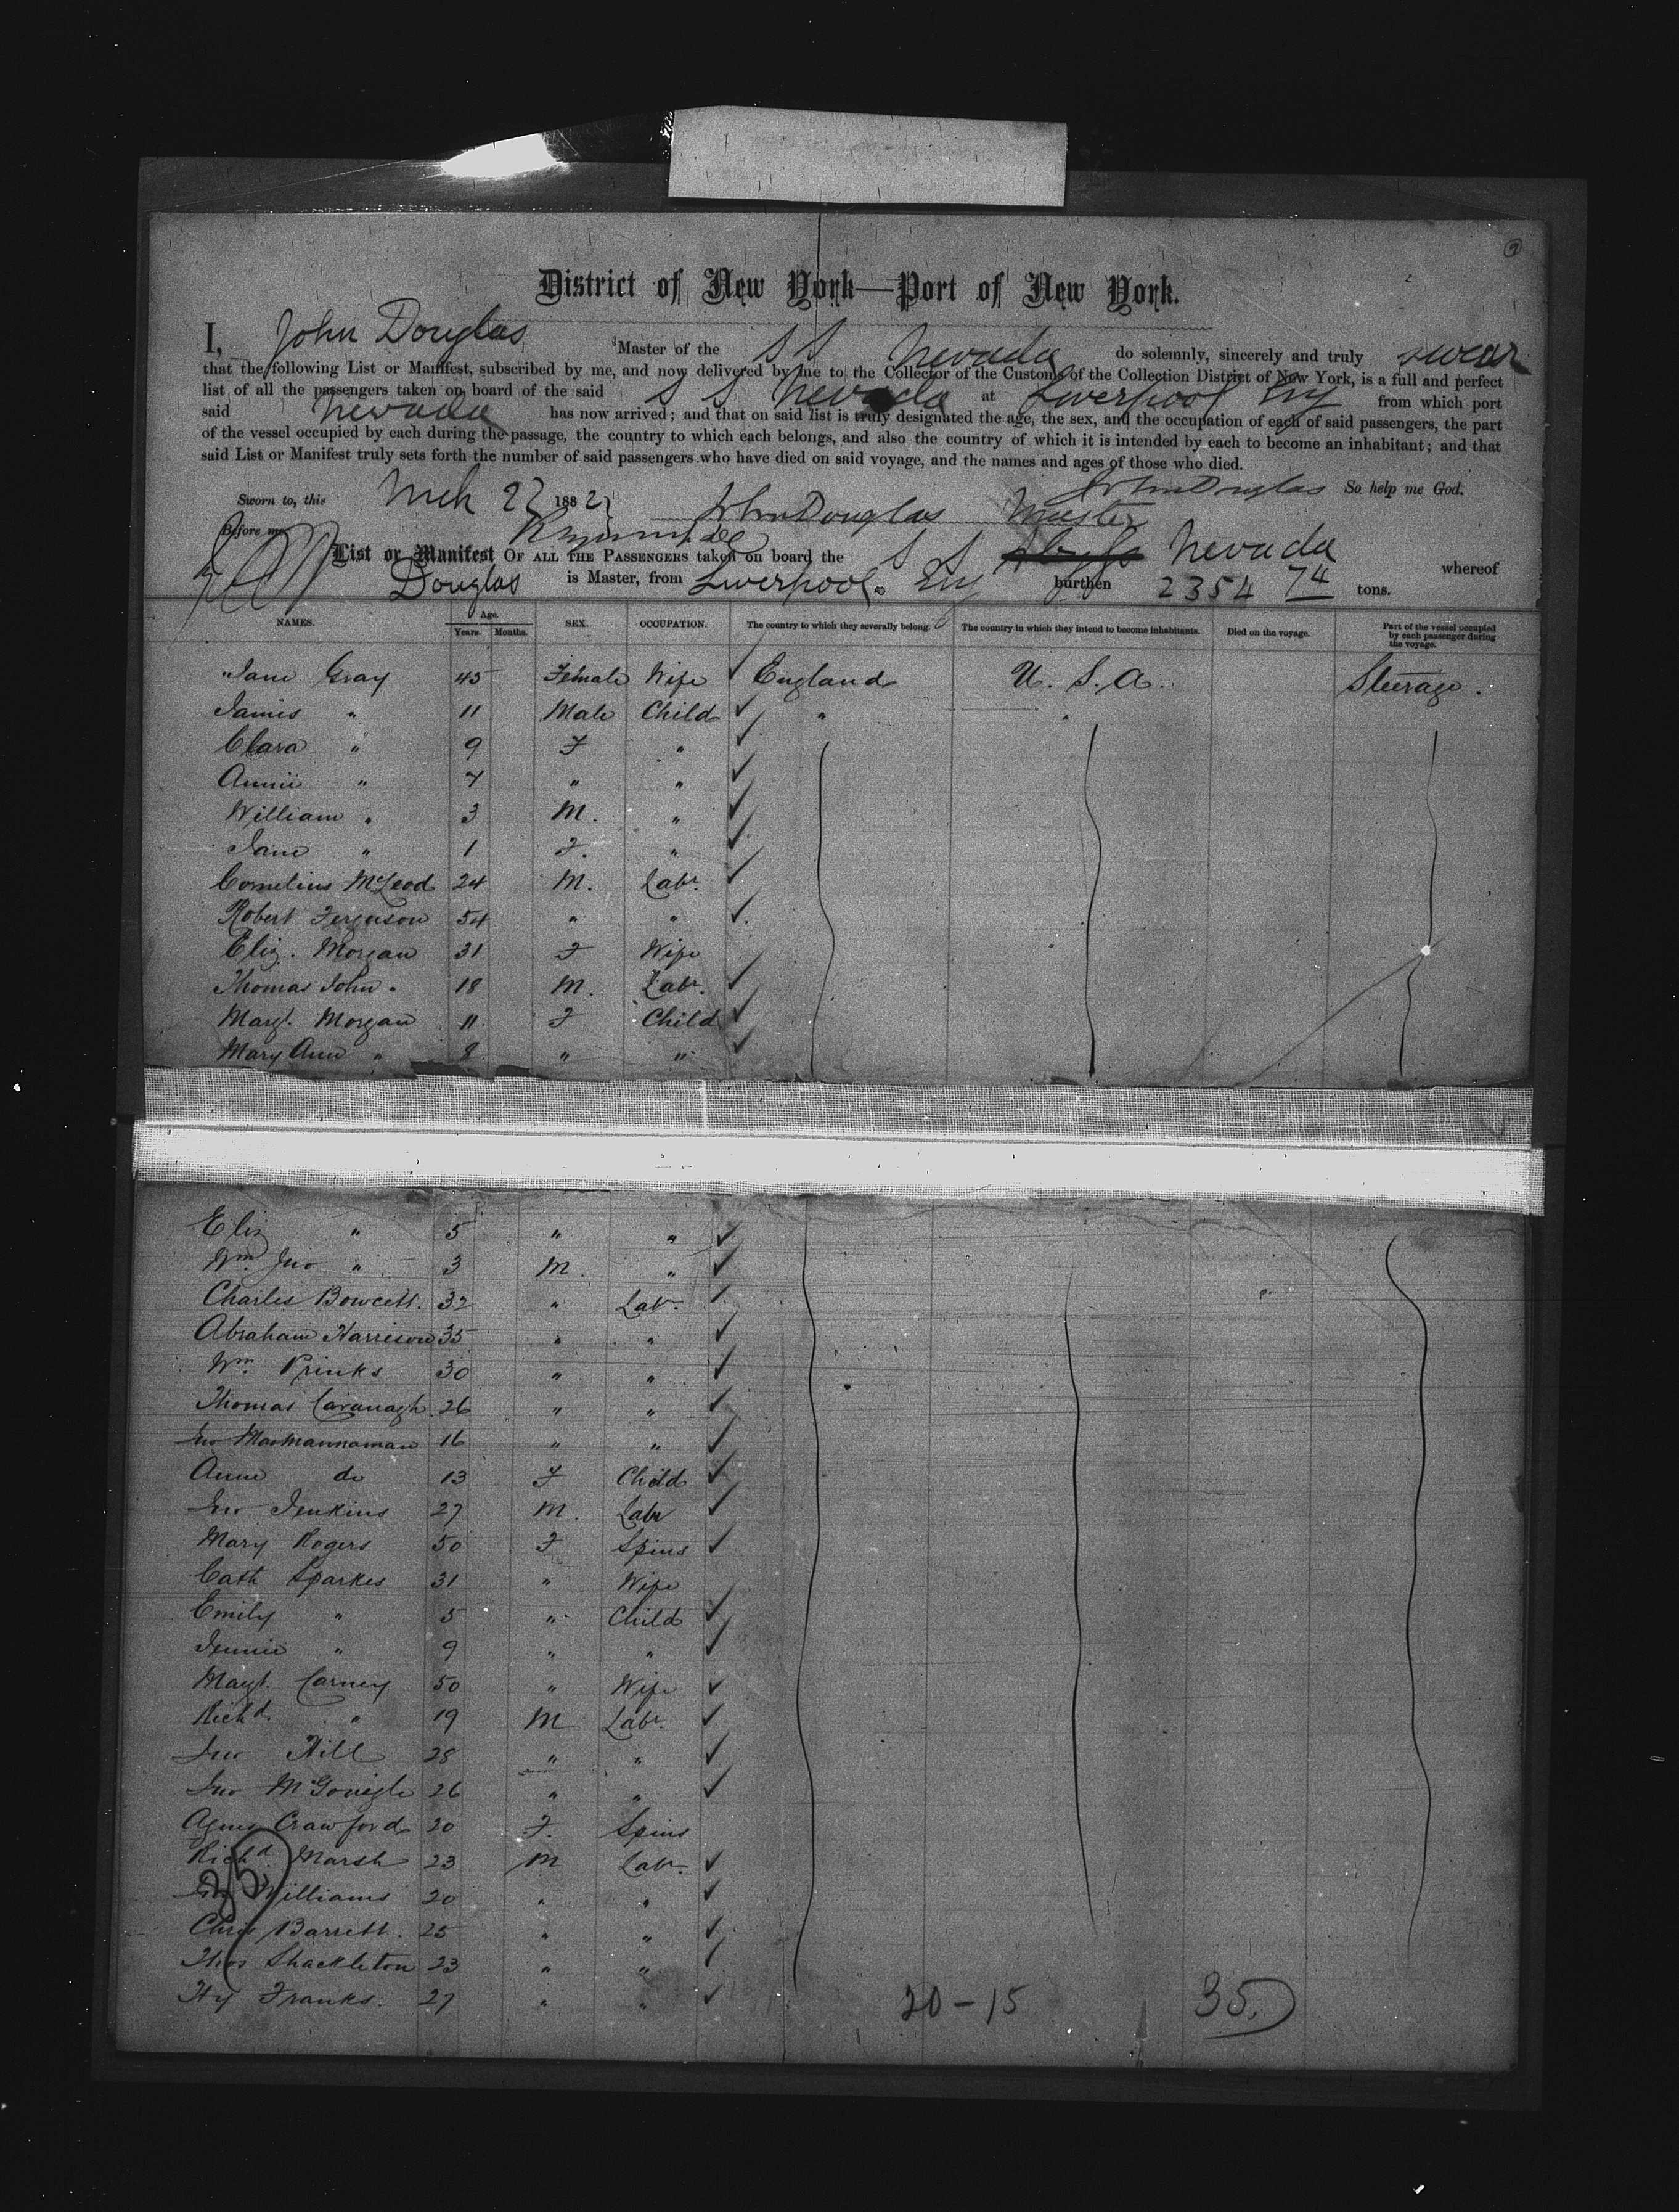 District of New York—Port of New York.
I, John Douglas Master of the S S Nevada do solemnly, sincerely and truly swear
that the following List or Manifest, subscribed by me, and now delivered by me to the Collector of the Customs of the Collection District of New York, is a full and perfect
list of all the passengers taken on board of the said S S Nevada at Liverpool Eng from which port
said Nevada has now arrived; and that on said list is truly designated the age, the sex, and the occupation of each of said passengers, the part
of the vessel occupied by each during the passage, the country to which each belongs, and also the country of which it is intended by each to become an inhabitant; and that
said List or Manifest truly sets forth the number of said passengers who have died on said voyage, and the names and ages of those who died.
John Douglas So help me God.
Sworn to, this Mch 1882 John Douglas Master
Before me
List or Manifest OF ALL THE PASSENGERS taken on board the S S Nevada whereof
Douglas is Master, from Liverpool. Eng burthen 2354 74 tons.
NAMES. Age. Years. Months. SEX. OCCUPATION. The country to which they severally belong. The country in which they intend to become inhabitants. Died on the voyage. Part of the vessel occupied by each passenger during the voyage.
Jane Gray 45 Female Wife ✓ England U. S. A. Steerage.
James " 11 Male Child ✓ " "
Clara " 9 F " ✓
Annie " 7 " " ✓
William " 3 M. " ✓
Jane " 1 F. " ✓
Cornelius McLeod 24 M. Labr. ✓
Robert Ferguson 54 " " ✓
Eliz. Morgan 31 F Wife
Thomas John. 18 M. Labr. ✓
Margt. Morgan 11 F Child ✓
Mary Ann " 8 " " ✓
Eliz " 5 " " ✓
Wm. Jno " 3 M. " ✓
Charles Bowcett. 32 " Labr. ✓
Abraham Harrison 35 " " ✓
Wm. Prinks 30 " " ✓
Thomas Cavanagh 26 " " ✓
Jno MacMannaman 16 " " ✓
Anne do 13 F Child ✓
Jno Jenkins 27 M. Labr ✓
Mary Rogers 50 F Spins ✓
Cath Sparkes 31 " Wife
Emily " 5 " Child ✓
Jennie " 9 " " ✓
Margt. Carney 50 " Wife ✓
Richd. " 19 M Labr. ✓
Jno Hill 28 " " ✓
Jno McGonigle 26 " " ✓
Agnes Crawford 20 F. Spins
Richd. Marsh 23 M Labr. ✓
Williams 20 " " ✓
Chas Barrett. 25 " " ✓
Thos Shackleton 23 " " ✓
Hy Franks. 27 " " ✓
20-15 35.